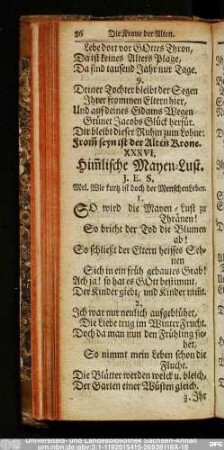 26 Die Krone der Alten.
Lebe dort vor GOttes Thron,
Da ist keines Alters Plage,
Da sind tausend Jahr nur Tage.
9.
Deiner Tochter bleibt der Segen
Ihrer frommen Eltern hier,
Und auf deines Eidams Wegen
Grünet Jacobs Glück herfür.
Dir bleibt dieser Ruhm zum Lohne:
From̃ seyn ist der Alten Krone.
XXXVI.
Him̃lische Mayen-Lust.
J. E. S.
Mel. Wie kurtz ist doch der Menschen Leben.
1.
SO wird die Mayen-Lust zu
Thränen!
So bricht der Tod die Blumen
ab!
So schliest der Eltern heisses Seh-
nen
Sich in ein früh gebautes Grab!
Ach ja! so hat es GOtt bestimmt,
Der Kinder giebt, und Kinder nimt.
2.
Ich war nur neulich aufgeblühet,
Die Liebe trug im Winter Frucht.
Doch da man nun den Frühling sie-
het,
So nimmt mein Leben schon die
Flucht.
Die Blätter werden welck u. bleich,
Der Garten einer Wüsten gleich.
3. Ihr
Universitäts- und Landesbibliothek Sachsen-Anhalt
urn:nbn:de:gbv:3:1-1192015415-26938116X-18
DFG